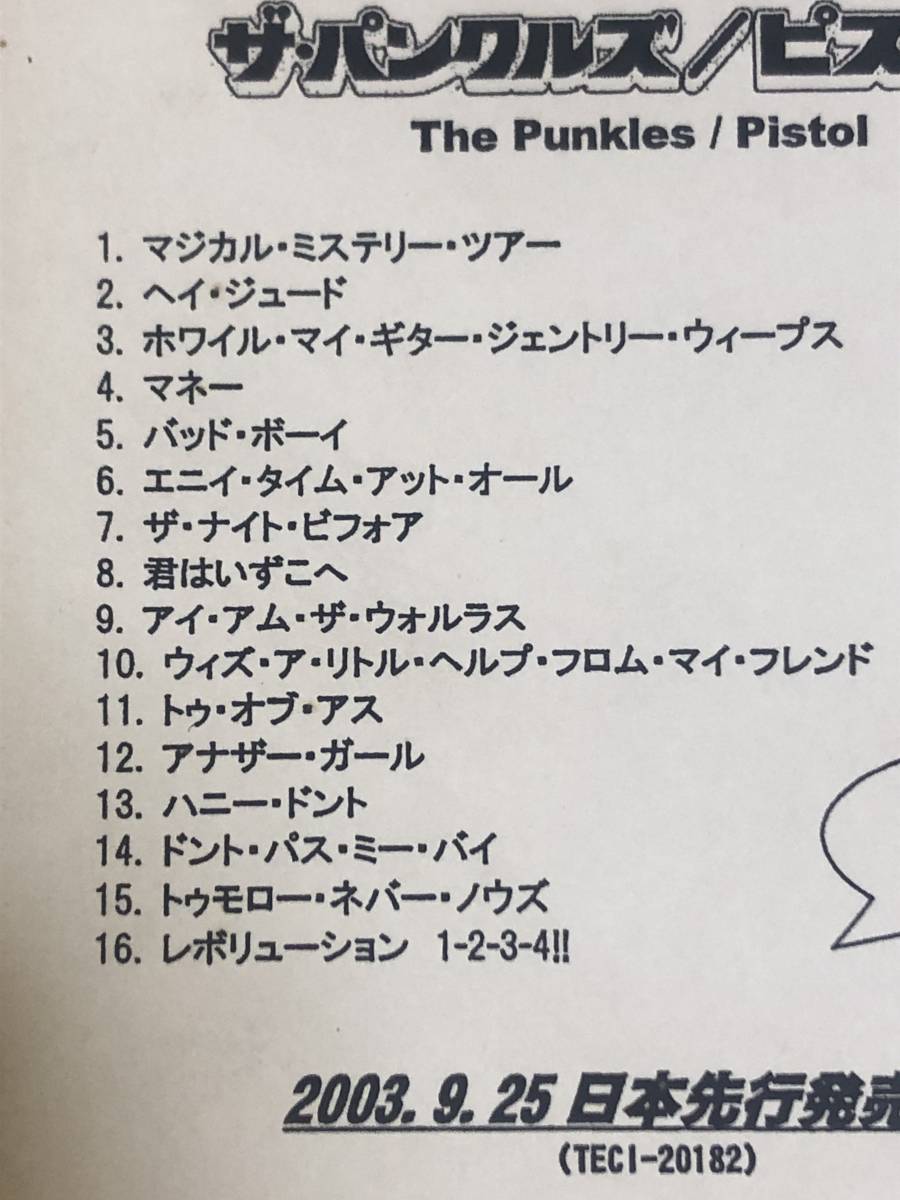 ザ・パンクルズ/ピス
The Punkles / Pistol
1. マジカル・ミステリー・ツアー
2. ヘイ・ジュード
3. ホワイル・マイ・ギター・ジェントリー・ウィープス
4. マネー
5. バッド・ボーイ
6. エニイ・タイム・アット・オール
7. ザ・ナイト・ビフォア
8. 君はいずこへ
9. アイ・アム・ザ・ウォルラス
10. ウィズ・ア・リトル・ヘルプ・フロム・マイ・フレンド
11. トゥ・オブ・アス
12. アナザー・ガール
13. ハニー・ドント
14. ドント・パス・ミー・バイ
15. トゥモロー・ネバー・ノウズ
16. レボリューション 1-2-3-4!!
2003. 9. 25 日本先行発売
(TECI-20182)